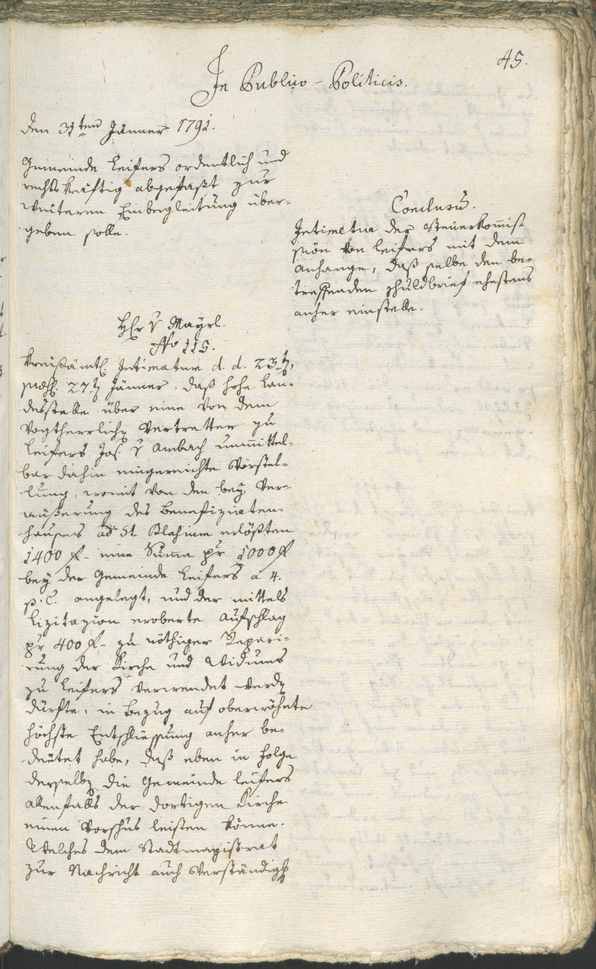 45.
In Publico-Politicis.
den 31ten Jänner 1791.
Gemeinde Leifers ordentlich und
rechtskräftig abgefaßt zur
weiteren Einbegleitung über-
geben solle.
Conclusum.
Intimetur der Steuerkommis-
sion von Leifers mit dem
Anhange, daß selbe den be-
treffenden Schuldbrief ehestens
anher einstelle.
Hr v Mayrl.
No 115.
Kreisämtl. Intimatum d. d. 23t,
präs. 27t Jänner, daß hohe Lan-
desstelle über eine von dem
Vogtherrlichen Vertretter zu
Leifers Jos. v Ambach unmittel-
bar dahin eingereichte Vorstel-
lung, womit von den bey Ver-
äußerung des Benefiziaten-
hauses ad St. erlößten
1400 f. eine Summ pr 1000 f
bey der Gemeinde Leifers a 4.
p. C. angelegt, und der mittels
Lizitazion eroberte Aufschlag
pr 400 f. zu nöthiger Repari-
rung der Kirche und Widums
zu Leifers verwendet werden
dürfte, in Bezug auf oberwöhnte
höchste Entschliessung anher be-
deutet habe, daß eben in Folge
derselben die Gemeinde Leifers
allenfalls der dortigen Kirche
einen Vorschus leisten könne.
Welches dem Stadtmagistrat
zur Nachricht auch Verständigung